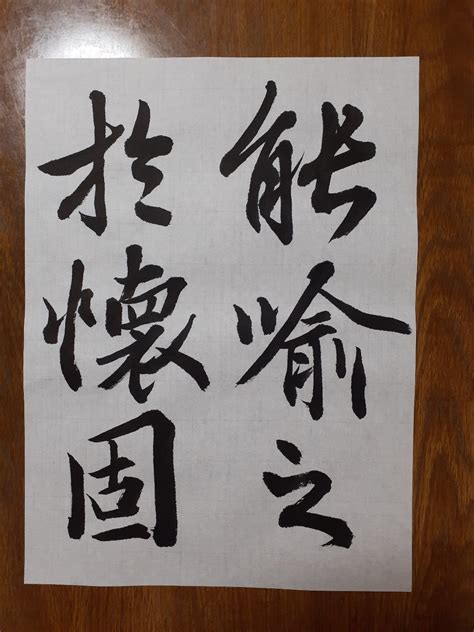 能喻之
於懷固